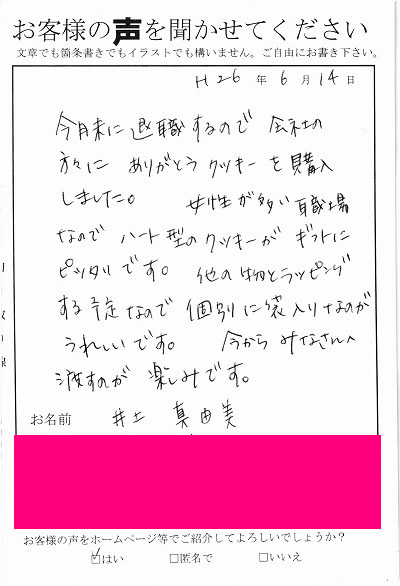 お客様の声を聞かせてください
文章でも箇条書きでもイラストでも構いません。ご自由にお書き下さい。
H26年6月14日
今月末に退職するので 会社の
方々に ありがとうクッキーを購入
しました。 女性が多い職場
なので ハート型のクッキーが ギフトに
ピッタリです。 他の物とラッピング
する予定なので 個別に袋入りなのが
うれしいです。 今から みなさんへ
渡すのが 楽しみです。
お名前 井土 真由美
お客様の声をホームページ等でご紹介してよろしいでしょうか？
☑はい □匿名で □いいえ